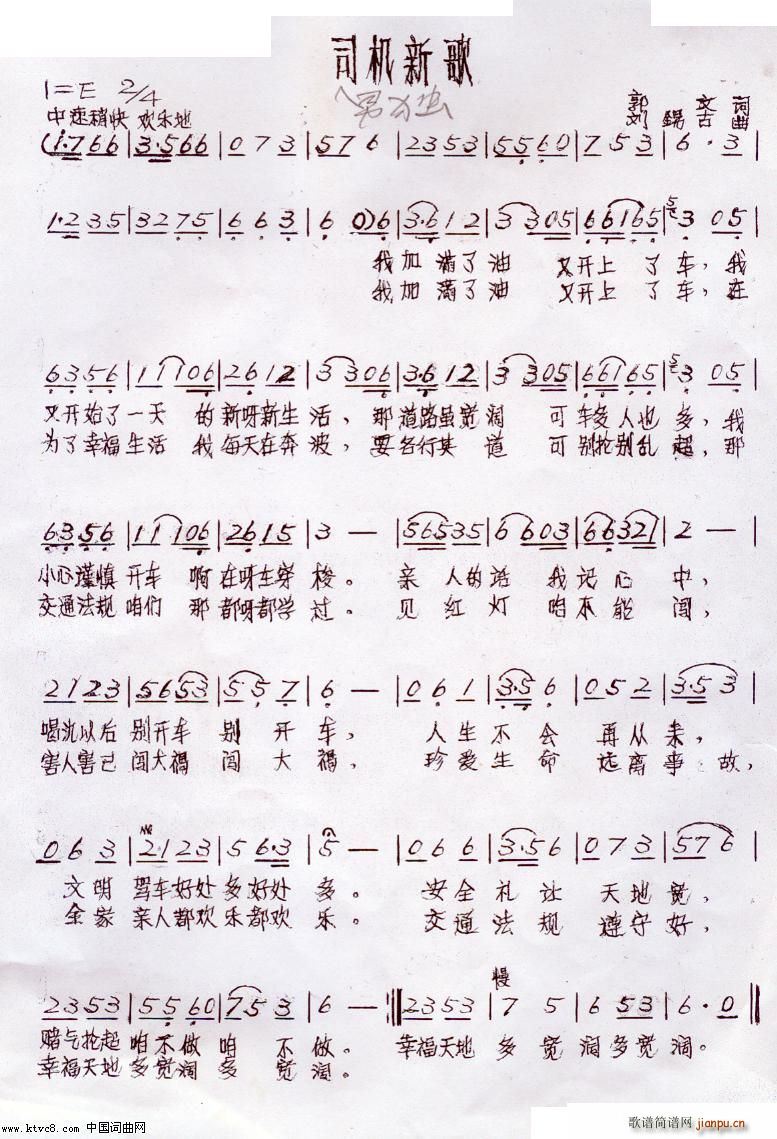 司机新歌
1=E 2/4
男声独
中速稍快 欢乐地
郭 文 词
刘 锡 古 曲
(1·766 | 3·566 | 073 | 576 | 2353 | 5560 | 753 | 6·3 |
1·235 | 3275 | 663 | 6 0)6 | 3·612 | 3 3305 | 66165 | 3 05 |
我加满了油 又开上了车,我
我加满了油 又开上了车,在
6356 | 11106 | 2612 | 3 306 | 3·612 | 3 3305 | 66165 | 3 05 |
又开始了一天 的新呀新生活,那道路虽宽阔 可车多人也多,我
为了幸福生活 我每天在奔波,要各行其道 可别抢别乱超,那
6·356 | 11106 | 2615 | 3 — | 56535 | 6 603 | 66321 | 2 — |
小心谨慎开车 啊在呀车穿梭。 亲人的话 我记心中,
交通法规咱们 那都呀都学过。 见红灯 咱不能闯,
2123 | 5653 | 557 | 6 — | 061 | 3·56 | 052 | 3·53 |
喝沈以后别开车 别开车, 人生不会再从来,
害人害己闯大祸 闯大祸, 珍爱生命远离事故,
063 | 2·123 | 56·3 | 5 — | 066 | 3·56 | 073 | 576 |
文明驾车好处多好处多。 安全礼让天地宽,
全家亲人都欢乐都欢乐。 交通法规遵守好,
慢
2353 | 5560 | 753 | 6 — :‖ 2353 | 7 5 | 6 53 | 6·0 ‖
赌气抢超咱不做咱不做。 幸福天地多宽阔多宽阔。
幸福天地多宽阔多宽阔。
www.ktvc8.com 中国词曲网
歌谱简谱网
jianpu.cn